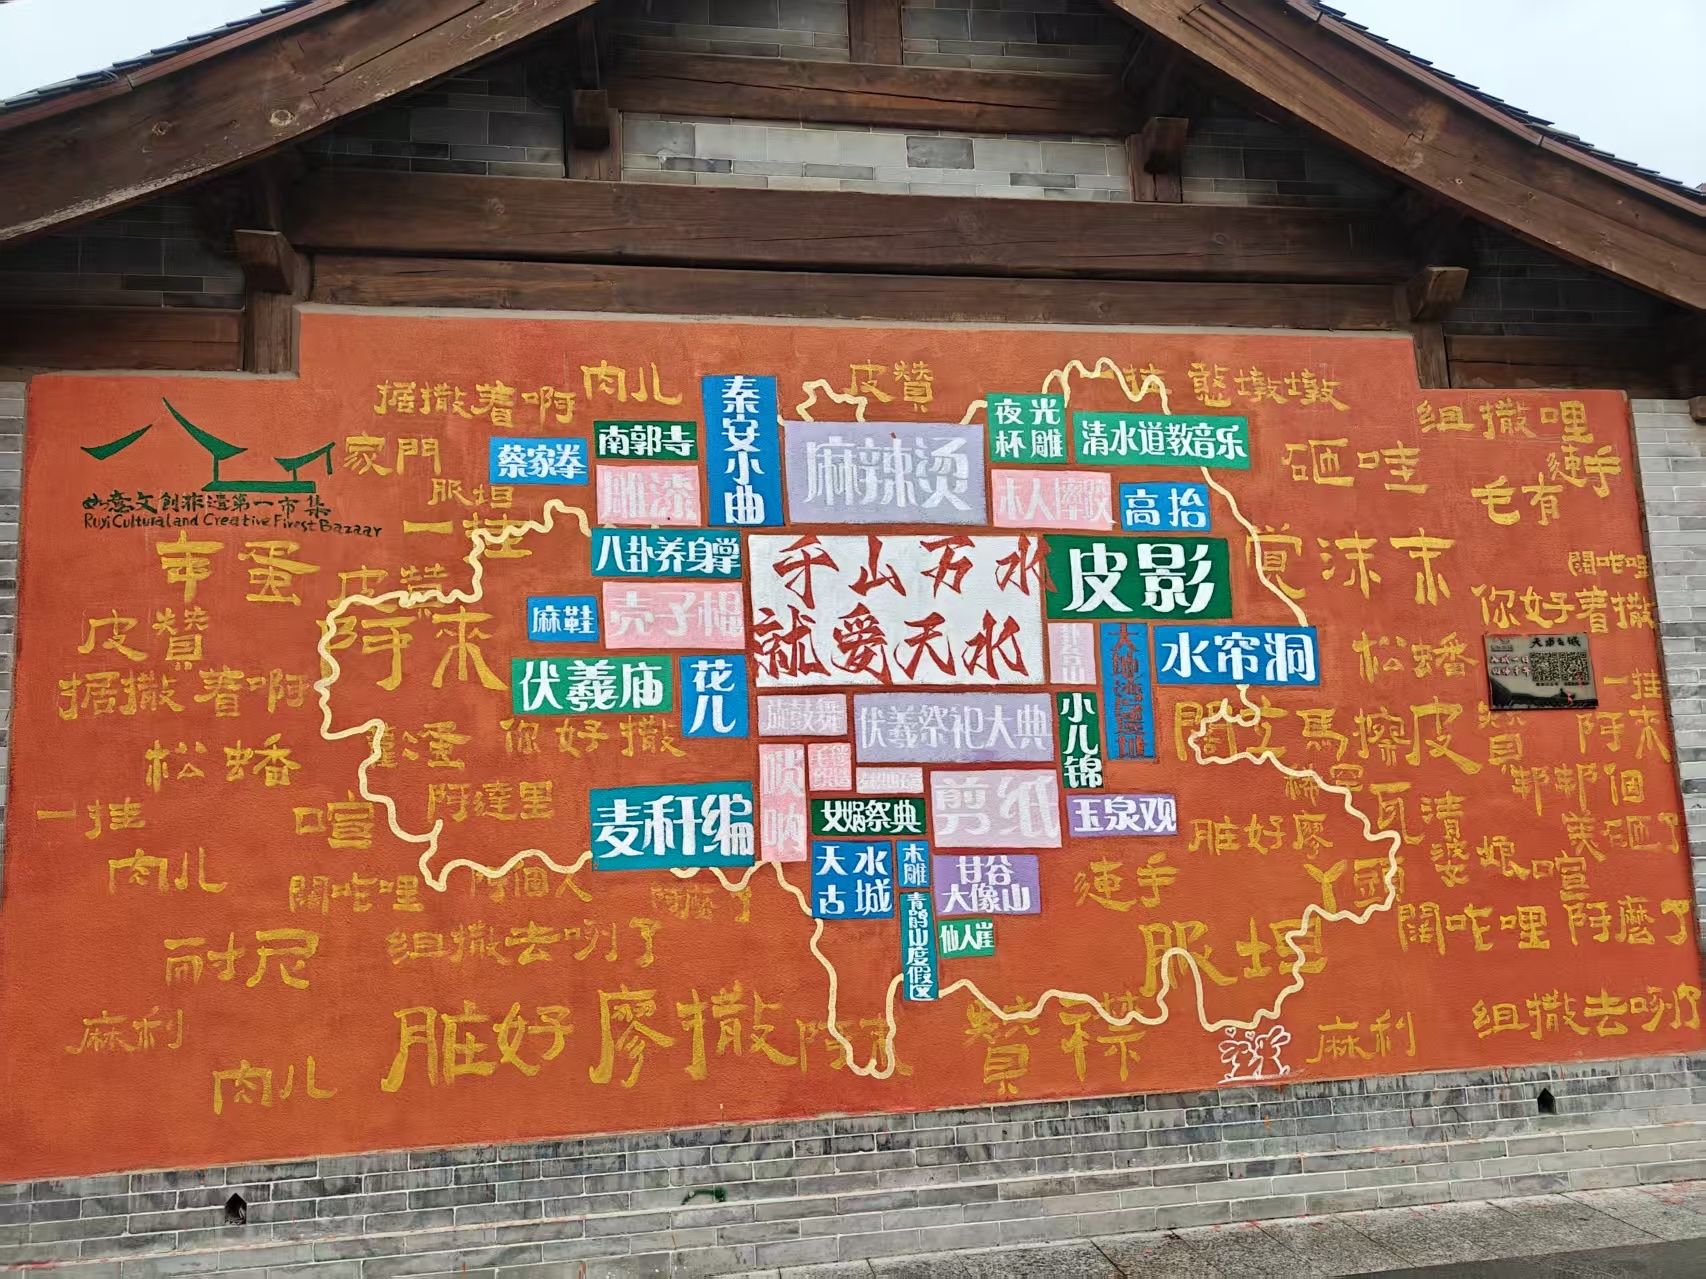 据撒着啊
肉儿
皮赞
憨墩墩
组撒哩
家門
蔡家拳
南郭寺
秦安小曲
麻辣烫
夜光杯雕
清水道教音乐
砸哇
連手
服坦
雕漆
木人摔跤
高抬
毛有
如意文创非遗第一市集
Ruyi Cultural and Creative Firest Bazaar
一挂
八卦养身掌
千山万水
就爱天水
皮影
覚沫末
闊咜哩
皮赞
你好着撒
皮赞
阿来
麻鞋
壳子棍
卦台山
水帘洞
松蟠
天水之城
据撒着啊
伏羲庙
花儿
小儿锦
一挂
松蟠
你好撒
旋鼓舞
伏羲祭祀大典
馬擦
皮赞
阿来
阿達里
唢呐
一挂
喧
麦秆编
女娲祭典
剪纸
玉泉观
脏好廖
邦邦個
砸了
肉儿
闊咜哩
阿個人
阿麼了
天水古城
木雕
甘谷大像山
連手
喧
耐尼
组撒去咧了
青鹃山度假区
仙人崖
服坦
闊咜哩
阿麼了
麻利
肉儿
脏好廖撒
阿来
麻利
组撒去咧了